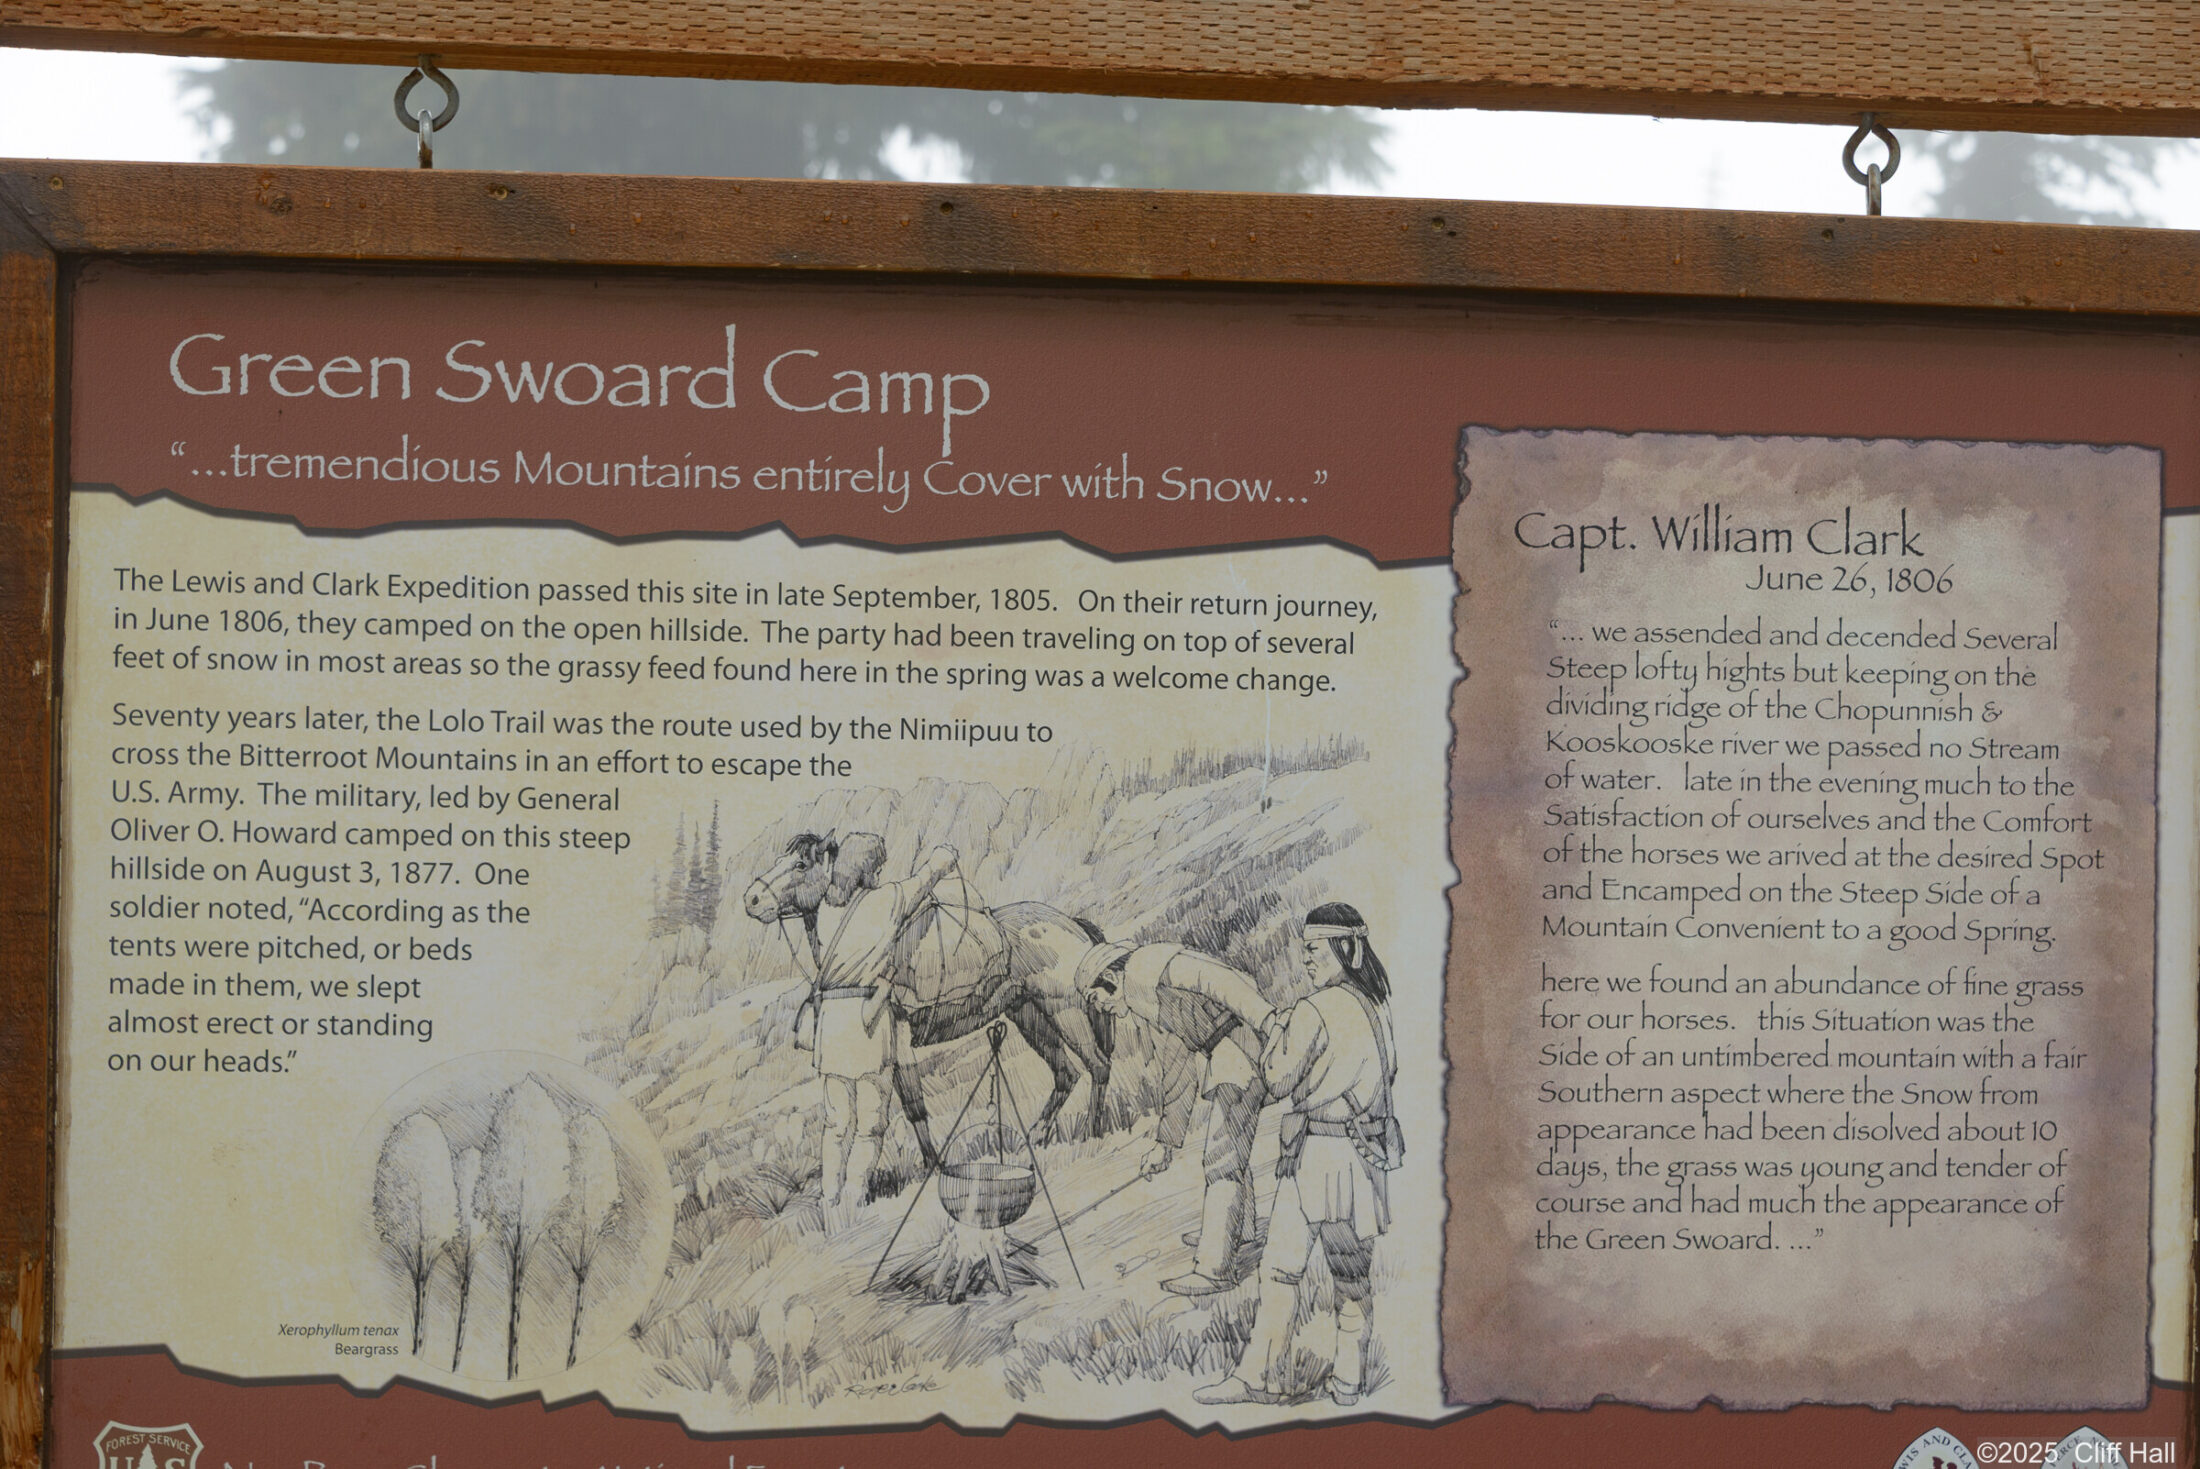 Green Swoard Camp
“...tremendious Mountains entirely Cover with Snow...”
The Lewis and Clark Expedition passed this site in late September, 1805. On their return journey,
in June 1806, they camped on the open hillside. The party had been traveling on top of several
feet of snow in most areas so the grassy feed found here in the spring was a welcome change.
Seventy years later, the Lolo Trail was the route used by the Nimiipuu to
cross the Bitterroot Mountains in an effort to escape the
U.S. Army. The military, led by General
Oliver O. Howard camped on this steep
hillside on August 3, 1877. One
soldier noted, “According as the
tents were pitched, or beds
made in them, we slept
almost erect or standing
on our heads.”
Xerophyllum tenax
Beargrass
Capt. William Clark
June 26, 1806
“... we assended and decended Several
Steep lofty hights but keeping on the
dividing ridge of the Chopunnish &
Kooskooske river we passed no Stream
of water. late in the evening much to the
Satisfaction of ourselves and the Comfort
of the horses we arived at the desired Spot
and Encamped on the Steep Side of a
Mountain Convenient to a good Spring.
here we found an abundance of fine grass
for our horses. this Situation was the
Side of an untimbered mountain with a fair
Southern aspect where the Snow from
appearance had been disolved about 10
days, the grass was young and tender of
course and had much the appearance of
the Green Swoard. ...”
FOREST SERVICE
U S
©2025 Cliff Hall